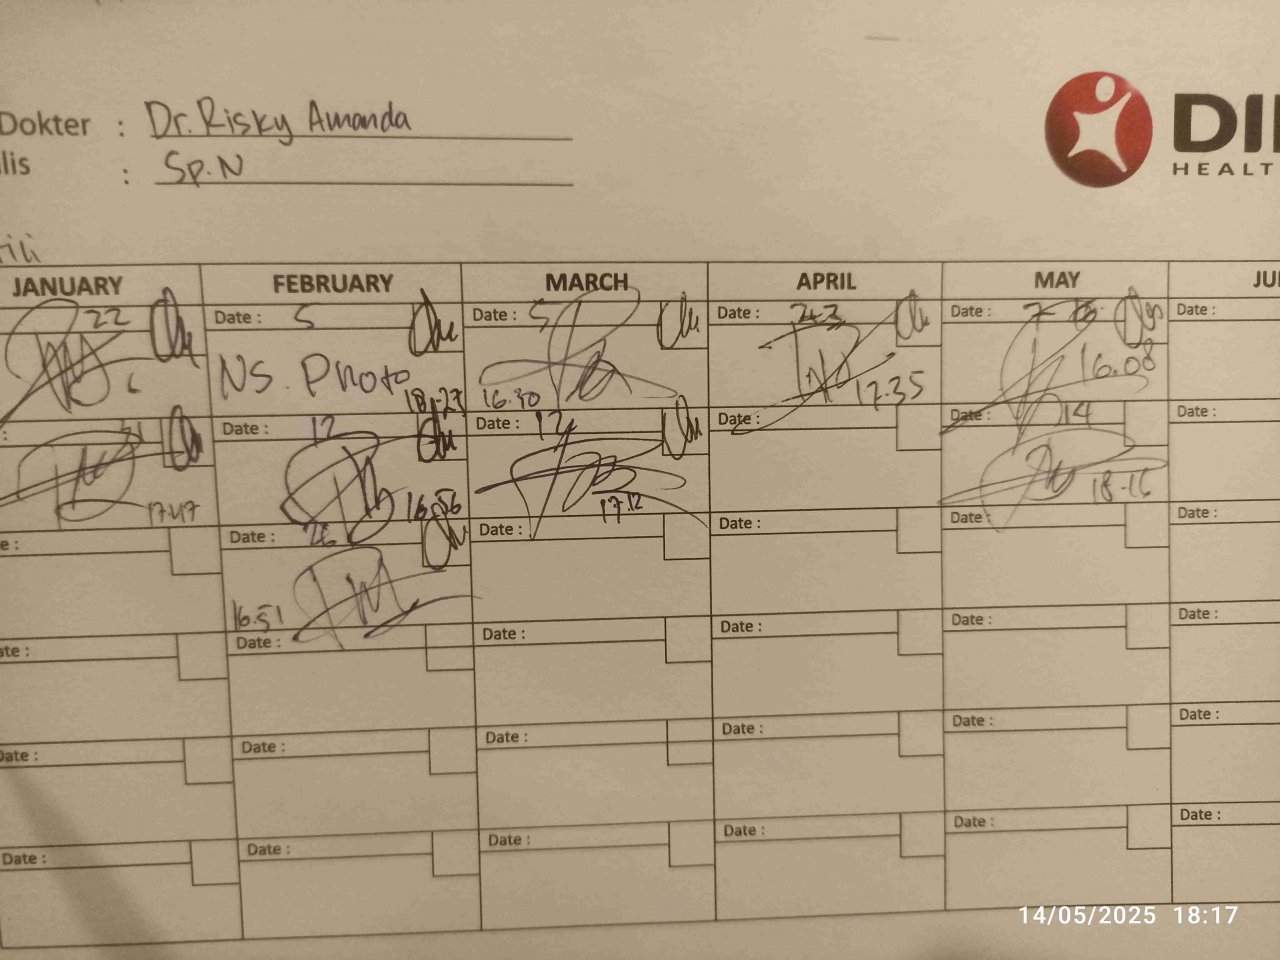 Dokter : Dr. Risky Amanda
lis : Sp.N
DI
HEALT
JANUARY FEBRUARY MARCH APRIL MAY JU
22 Date : 5 Date : 5 Date : 23 Date : 7 Date :
NS. Proto 18.27 16.30 17.35 16.08
: Date : 12 Date : 12 Date : Date : 14 Date :
17.47 16.56 17.12 18.16
e : Date : 26 Date : Date : Date : Date :
16.51
ate : Date : Date : Date : Date :
Date : Date : Date : Date : Date : Date :
Date : Date : Date : Date : Date : Date :
14/05/2025 18:17